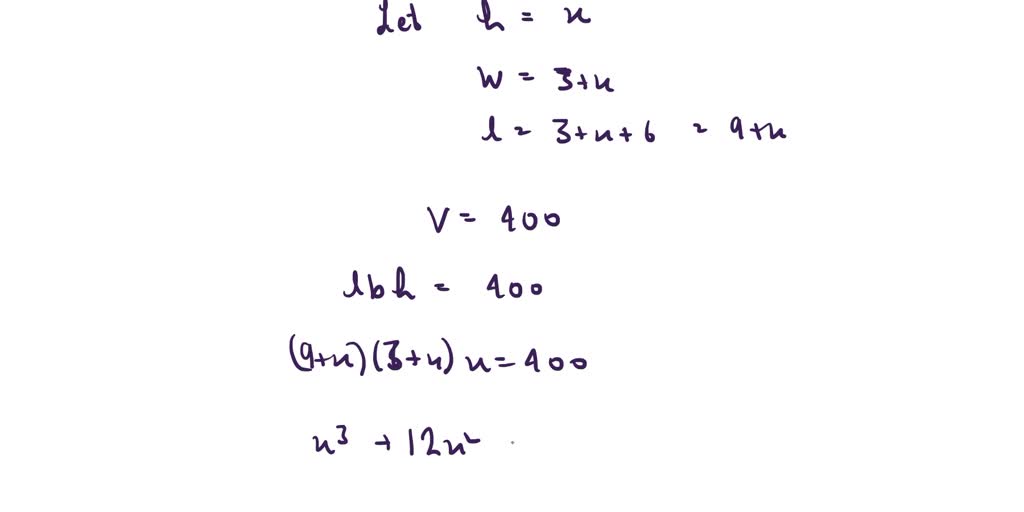 Let h = x
w = 3+x
l = 3+x+6 = 9+x
V = 400
lbh = 400
(9+x)(3+x)x=400
x³ + 12x²